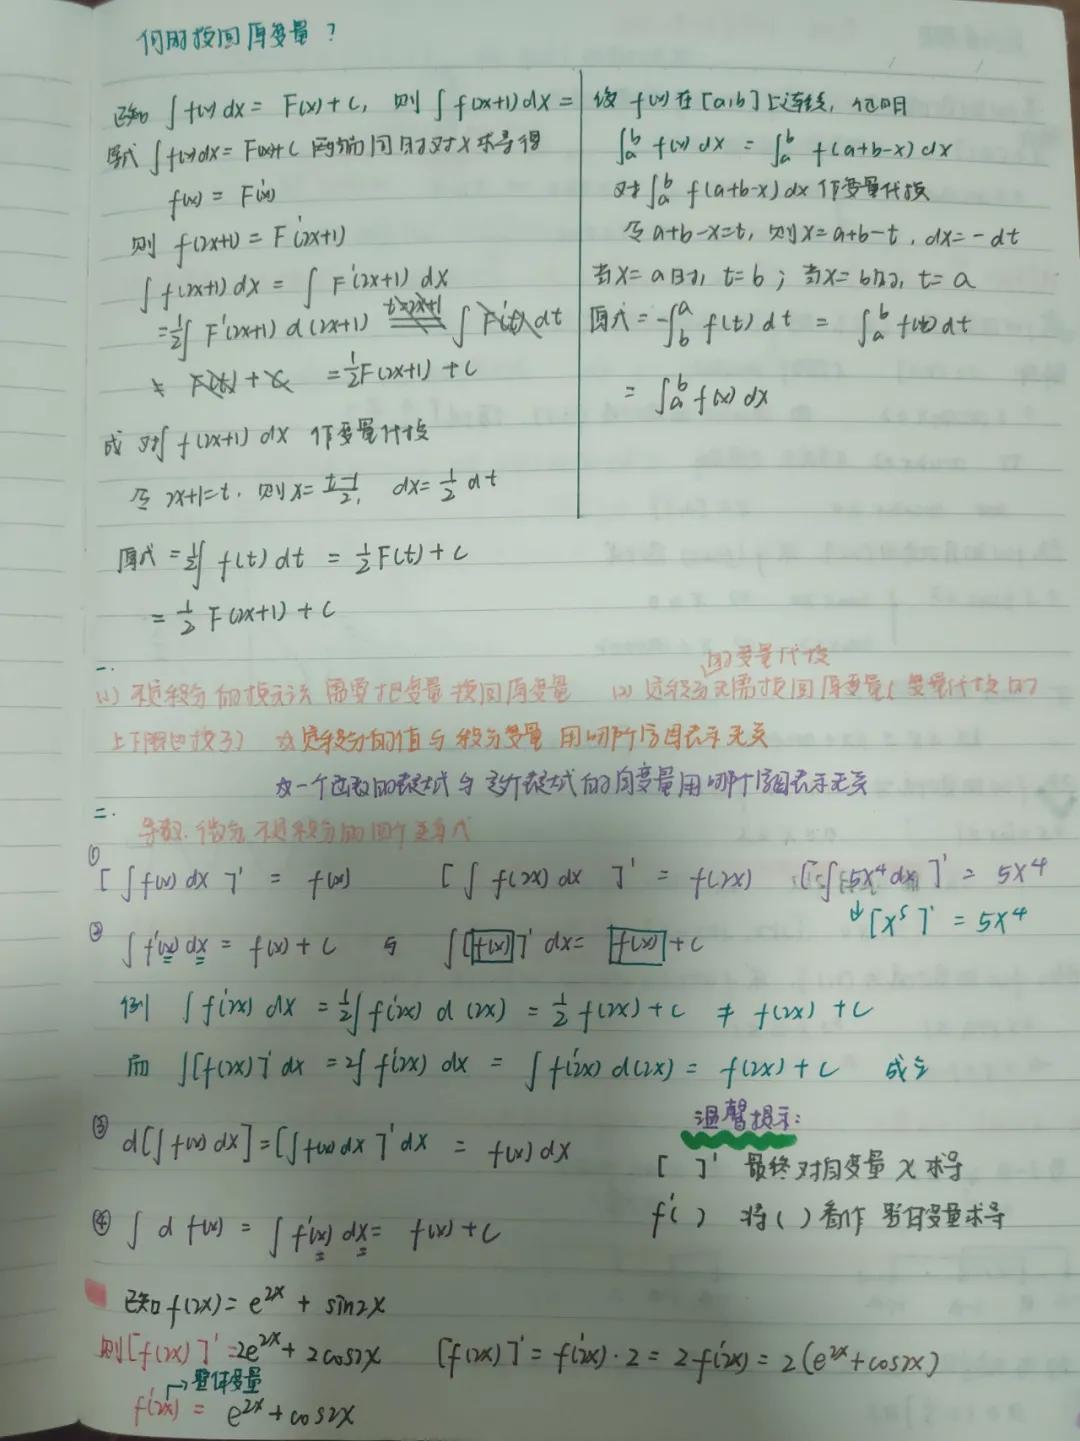 何时换回原变量？
已知 ∫f(x)dx = F(x)+C, 则 ∫f(2x+1)dx =
原式 ∫f(x)dx = F(x)+C 两端同时对x求导得
f(x) = F'(x)
则 f(2x+1) = F'(2x+1)
∫f(2x+1)dx = ∫F'(2x+1)dx
=½∫F'(2x+1)d(2x+1) t=2x+1 ∫F'(t)dt
= F(t)+C =½F(2x+1)+C
或 对∫f(2x+1)dx 作变量代换
令 2x+1=t, 则x=(t-1)/2, dx=½dt
原式 =½∫f(t)dt = ½F(t)+C
= ½F(2x+1)+C
设 f(x) 在[a,b]上连续, 证明
∫ₐᵇ f(x)dx = ∫ₐᵇ f(a+b-x)dx
对∫ₐᵇ f(a+b-x)dx 作变量代换
令a+b-x=t, 则x=a+b-t, dx=-dt
当x=a时, t=b; 当x=b时, t=a
原式 = -∫_b^a f(t)dt = ∫ₐᵇ f(t)dt
= ∫ₐᵇ f(x)dx
一.
(1) 不定积分的换元法 需要把变量换回原变量 (2) 定积分的变量代换无需换回原变量(变量代换时
上下限也换了) ☆定积分的值与积分变量用哪个字母表示无关
☆一个函数的表达式与这个表达式的自变量用哪个字母表示无关
二.
导数.微分.不定积分的四个恒等式
① [∫f(x)dx]' = f(x) [∫f(2x)dx]' = f(2x) [∫5x⁴dx]' = 5x⁴
↓[x⁵]' = 5x⁴
② ∫f'(x)dx = f(x)+C 与 ∫[f(x)]'dx = f(x)+C
例 ∫f'(2x)dx =½∫f'(2x)d(2x) = ½f(2x)+C ≠ f(2x)+C
而 ∫[f(2x)]'dx =2∫f'(2x)dx = ∫f'(2x)d(2x) = f(2x)+C 成立
③ d[∫f(x)dx]=[∫f(x)dx]'dx = f(x)dx
温馨提示:
[ ]' 最终对自变量x求导
f'( ) 将( )看作整体变量求导
④ ∫d f(x) = ∫f'(x)dx = f(x)+C
已知f(2x)= e²ˣ + sin2x
则[f(2x)]'=2e²ˣ+2cos2x [f(2x)]'=f'(2x)·2=2f'(2x)=2(e²ˣ+cos2x)
→整体变量
f'(2x) = e²ˣ+cos2x